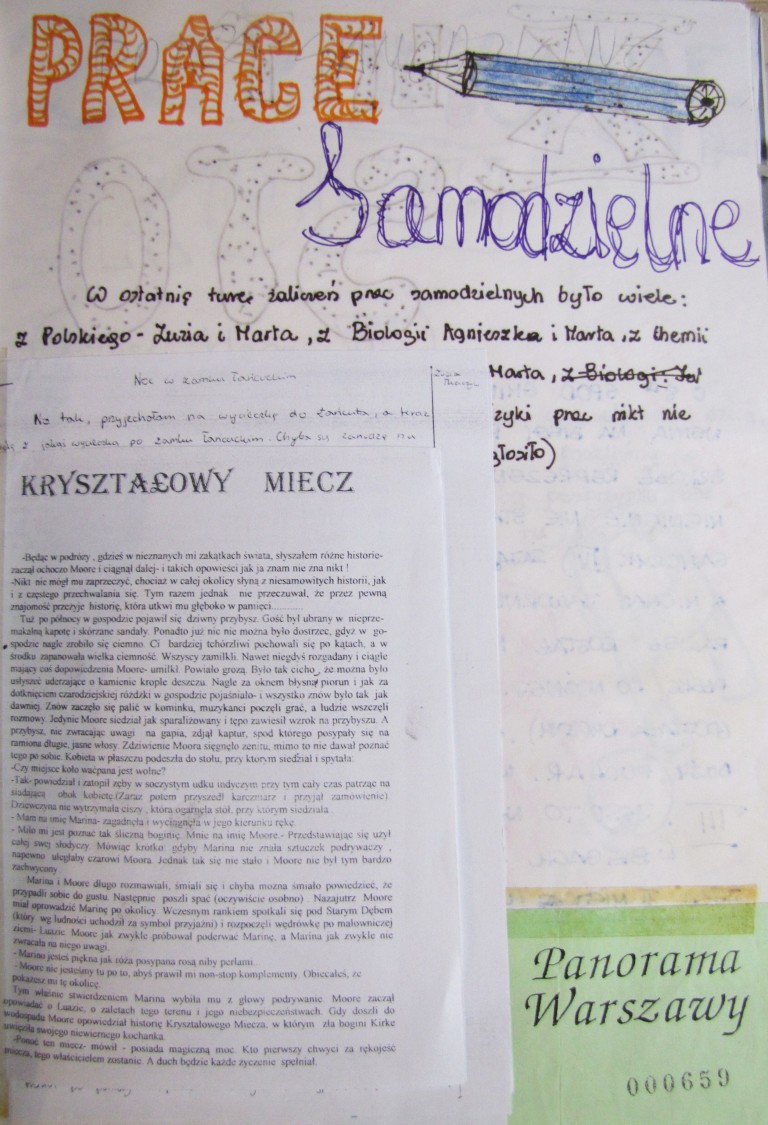 PRACE
Samodzielne
W ostatnię turę zaliczeń prac samodzielnych było wiele:
z Polskiego - Zuzia i Marta, z Biologii Agnieszka i Marta, z Chemii
Marta, z Biologi:
zyki prac nikt nie
zgłosiło)
Noc w zamku łańcuckim
No tak, przyjechałam na wycieczkę do Łańcuta, a teraz
z jakąś wycieczką po zamku łańcuckim. Chyba się zanudzę na
KRYSZTAŁOWY MIECZ
-Będąc w podróży , gdzieś w nieznanych mi zakątkach świata, słyszałem różne historie-
zaczął ochoczo Moore i ciągnął dalej- i takich opowieści jak ja znam nie zna nikt !
-Nikt nie mógł mu zaprzeczyć, chociaż w całej okolicy słyną z niesamowitych historii, jak
i z częstego przechwalania się. Tym razem jednak nie przeczuwał, że przez pewną
znajomość przeżyje historię, która utkwi mu głęboko w pamięci............
Tuż po północy w gospodzie pojawił się dziwny przybysz. Gość był ubrany w nieprze-
makalną kapotę i skórzane sandały. Ponadto już nic nie można było dostrzec, gdyż w go-
spodzie nagle zrobiło się ciemno. Ci bardziej tchórzliwi pochowali się po kątach, a w
środku zapanowała wielka ciemność. Wszyscy zamilkli. Nawet niegdyś rozgadany i ciągle
mający coś dopowiedzenia Moore- umilkł. Powiało grozą. Było tak cicho , że można było
usłyszeć uderzające o kamienie krople deszczu. Nagle za oknem błysnął piorun i jak za
dotknięciem czarodziejskiej różdżki w gospodzie pojaśniało- i wszystko znów było tak jak
dawniej. Znów zaczęło się palić w kominku, muzykanci poczęli grać, a ludzie wszczęli
rozmowy. Jedynie Moore siedział jak sparaliżowany i tępo zawiesił wzrok na przybyszu. A
przybysz, nie zwracając uwagi na gapia, zdjął kaptur, spod którego posypały się na
ramiona długie, jasne włosy. Zdziwienie Moora sięgnęło zenitu, mimo to nie dawał poznać
tego po sobie. Kobieta w płaszczu podeszła do stołu, przy którym siedział i spytała:
-Czy miejsce koło waćpana jest wolne?
-Tak- powiedział i zatopił zęby w soczystym udku indyczym przy tym cały czas patrząc na
siadającą obok kobietę.(Zaraz potem przyszedł karczmarz i przyjął zamówienie).
Dziewczyna nie wytrzymała ciszy , która ogarnęła stół, przy którym siedziała .
- Mam na imię Marina- zagadnęła i wyciągnęła w jego kierunku rękę.
- Miło mi jest poznać tak śliczną boginię. Mnie na imię Moore.- Przedstawiając się użył
całej swej słodyczy. Mówiąc krótko: gdyby Marina nie znała sztuczek podrywaczy ,
napewno uległaby czarowi Moora. Jednak tak się nie stało i Moore nie był tym bardzo
zachwycony .
Marina i Moore długo rozmawiali, śmiali się i chyba można śmiało powiedzieć, że
przypadli sobie do gustu. Następnie poszli spać (oczywiście osobno) . Nazajutrz Moore
miał oprowadzić Marinę po okolicy. Wczesnym rankiem spotkali się pod Starym Dębem
(który wg ludności uchodził za symbol przyjaźni) i rozpoczęli wędrówkę po malowniczej
ziemi- Luazie. Moore jak zwykle próbował poderwać Marinę, a Marina jak zwykle nie
zwracała na niego uwagi.
- Marino jesteś piękna jak róża posypana rosą niby perłami...
- Moore nie jesteśmy tu po to, abyś prawił mi non-stop komplementy. Obiecałeś, że
pokażesz mi tę okolicę.
Tym właśnie stwierdzeniem Marina wybiła mu z głowy podrywanie. Moore zaczął
opowiadać o Luazie, o zaletach tego terenu i jego niebezpieczeństwach. Gdy doszli do
wodospadu Moore opowiedział historię Kryształowego Miecza, w którym zła bogini Kirke
uwięziła swojego niewiernego kochanka.
-Ponoć ten miecz- mówił - posiada magiczną moc. Kto pierwszy chwyci za rękojeść
miecza, tego właścicielem zostanie. A duch będzie każde życzenie spełniał.
Panorama
Warszawy
000659